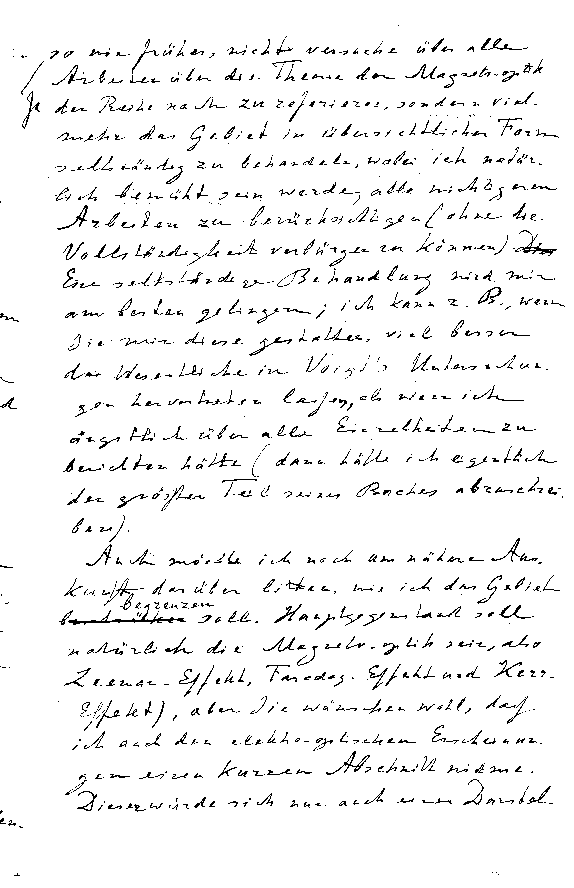 so wie früher, nicht versuche über alle
Arbeiten über das Thema der Magneto-optik
der Reihe nach zu referieren, sondern viel-
mehr das Gebiet in übersichtlicher Form
selbständig zu behandeln, wobei ich natür-
lich bemüht sein werde, alle wichtigeren
Arbeiten zu berücksichtigen (ohne die
Vollständigkeit verbürgen zu können) Die
Eine selbständige Behandlung wird mir
am besten gelingen; ich kann z. B., wenn
Sie mir diese gestatten, viel besser
das Wesentliche in Voigt's Untersuchun-
gen hervortreten lassen, als wenn ich
ängstlich über alle Einzelheiten zu
berichten hätte (dann hätte ich eigentlich
den größten Teil seines Buches abzuschrei-
ben).
Auch möchte ich noch um nähere Aus-
kunft darüber bitten, wie ich das Gebiet
begrenzen
soll. Hauptgegenstand soll
natürlich die Magneto-optik sein, also
Zeeman-Effekt, Faraday-Effekt und Kerr-
Effekt), aber Sie wünschen wohl, daß
ich auch den elektro-optischen Erscheinun-
gen einen kurzen Abschnitt widme.
Dieser würde sich nun auch einer Darstel-